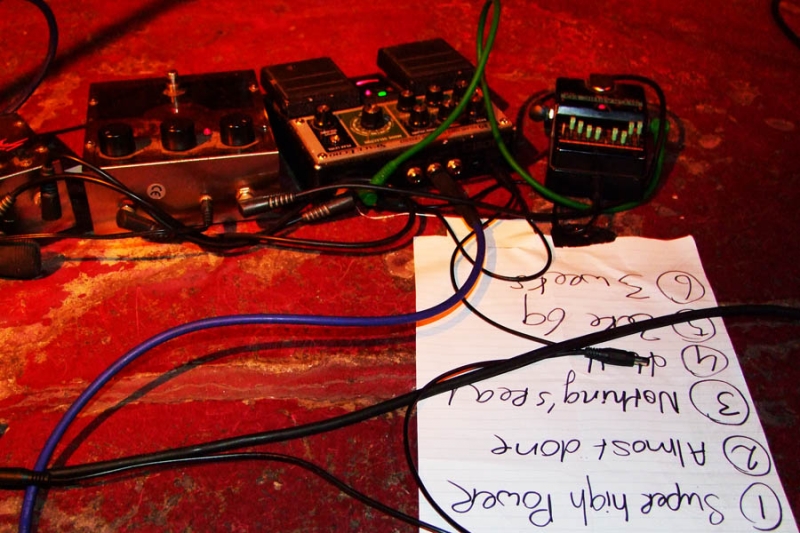 ① Super high Power
② Almost done
③ Nothing's Real
④
⑤ 69
⑥ 3 weeks